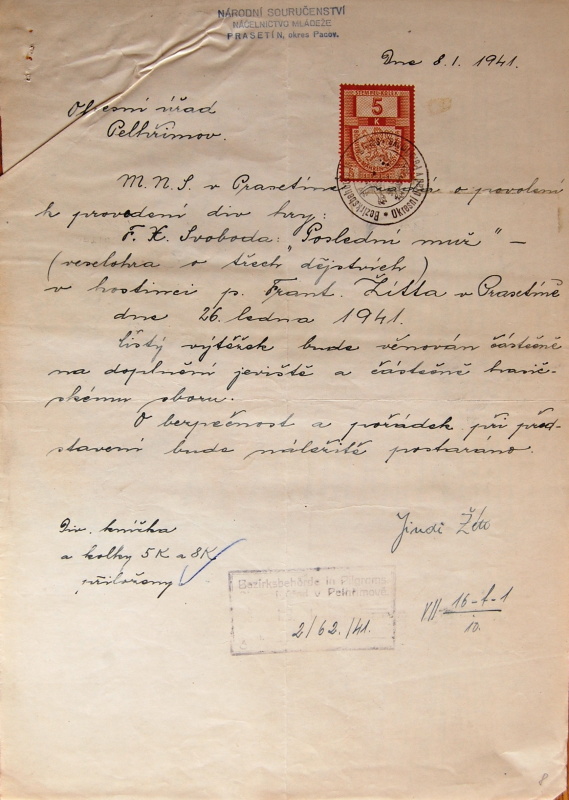 NÁRODNÍ SOURUČENSTVÍ
NÁČELNICTVO MLÁDEŽE
PRASETÍN, okres Pacov.
Dne 8.I. 1941.
Okresní úřad
Pelhřimov.
5
K
M.N.S. v Prasetíně žádá o povolení
k provedení div hry:
F. X. Svoboda: "Poslední muž" –
(veselohra o třech dějstvích)
v hostinci p. Frant. Žitta v Prasetíně
dne 26. ledna 1941.
Čistý výtěžek bude věnován částečně
na doplnění jeviště a částečně hasič-
skému sboru.
O bezpečnost a pořádek při před-
stavení bude náležitě postaráno.
Div. knížka
a kolky 5 K a 8K
přiloženy
Jindř
Bezirksbehörde in Pilgrams
v Pelhřimově.
2/62/41.
VII-16-f-1
10.
8